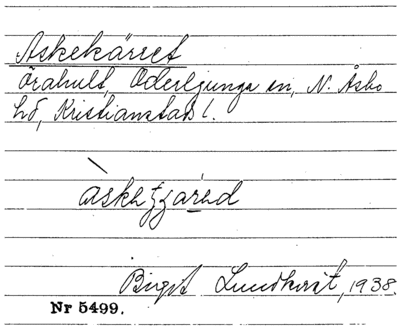 Askekärret
Örahult, Oderljunga sn, N. Åsbo
hd, Kristianstads l.
Birgit Lundkvist, 1938.
Nr 5499.